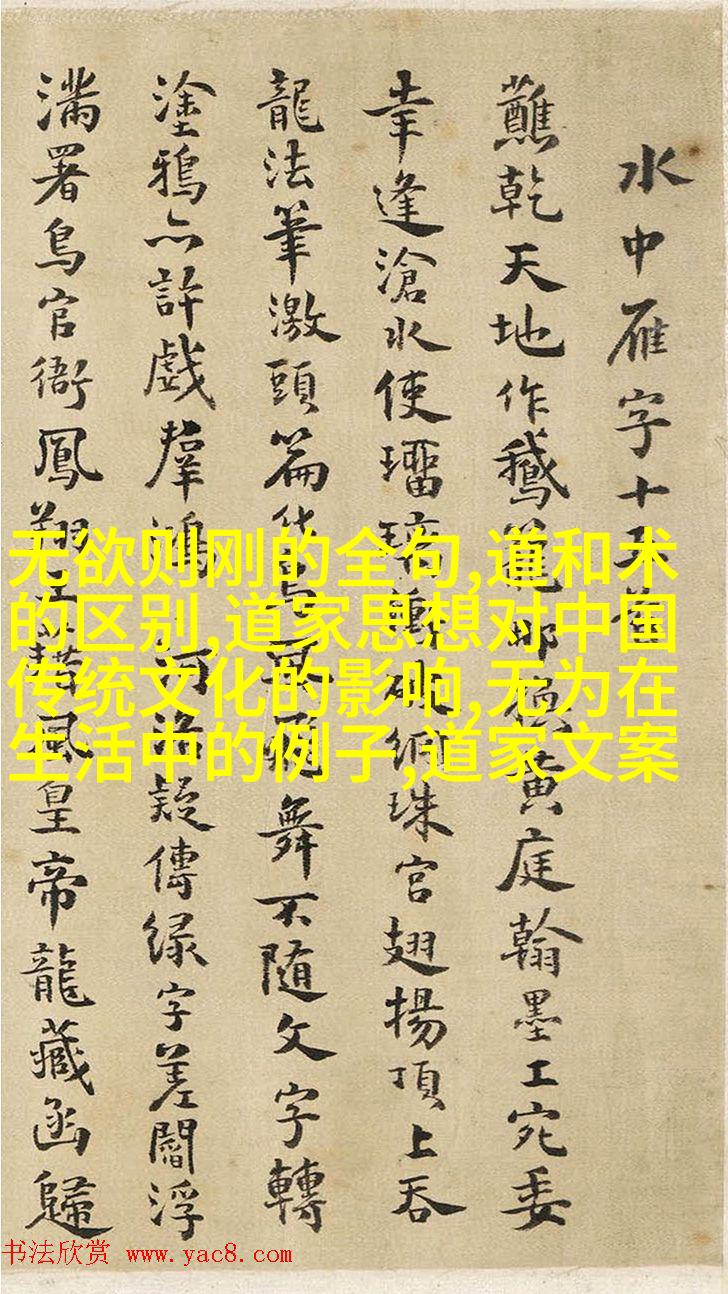 水中雁字十
蘸乾天地作鵝那換黃庭翰墨工宛委
幸逢滄水使璠網珠宮翅揚頂上吞
龍法筆激頭篇飛舞不隨文字轉
塗鴉亦許戲羣鴻河洛疑傳緑字差閻浮
滿署鳥官銜鳳翔風皇帝龍藏函歸
无欲则刚的全句,道和术
的区别,道家思想对中国
传统文化的影响,无为在
生活中的例子,道家文案
书法欣赏 www.yac8.com